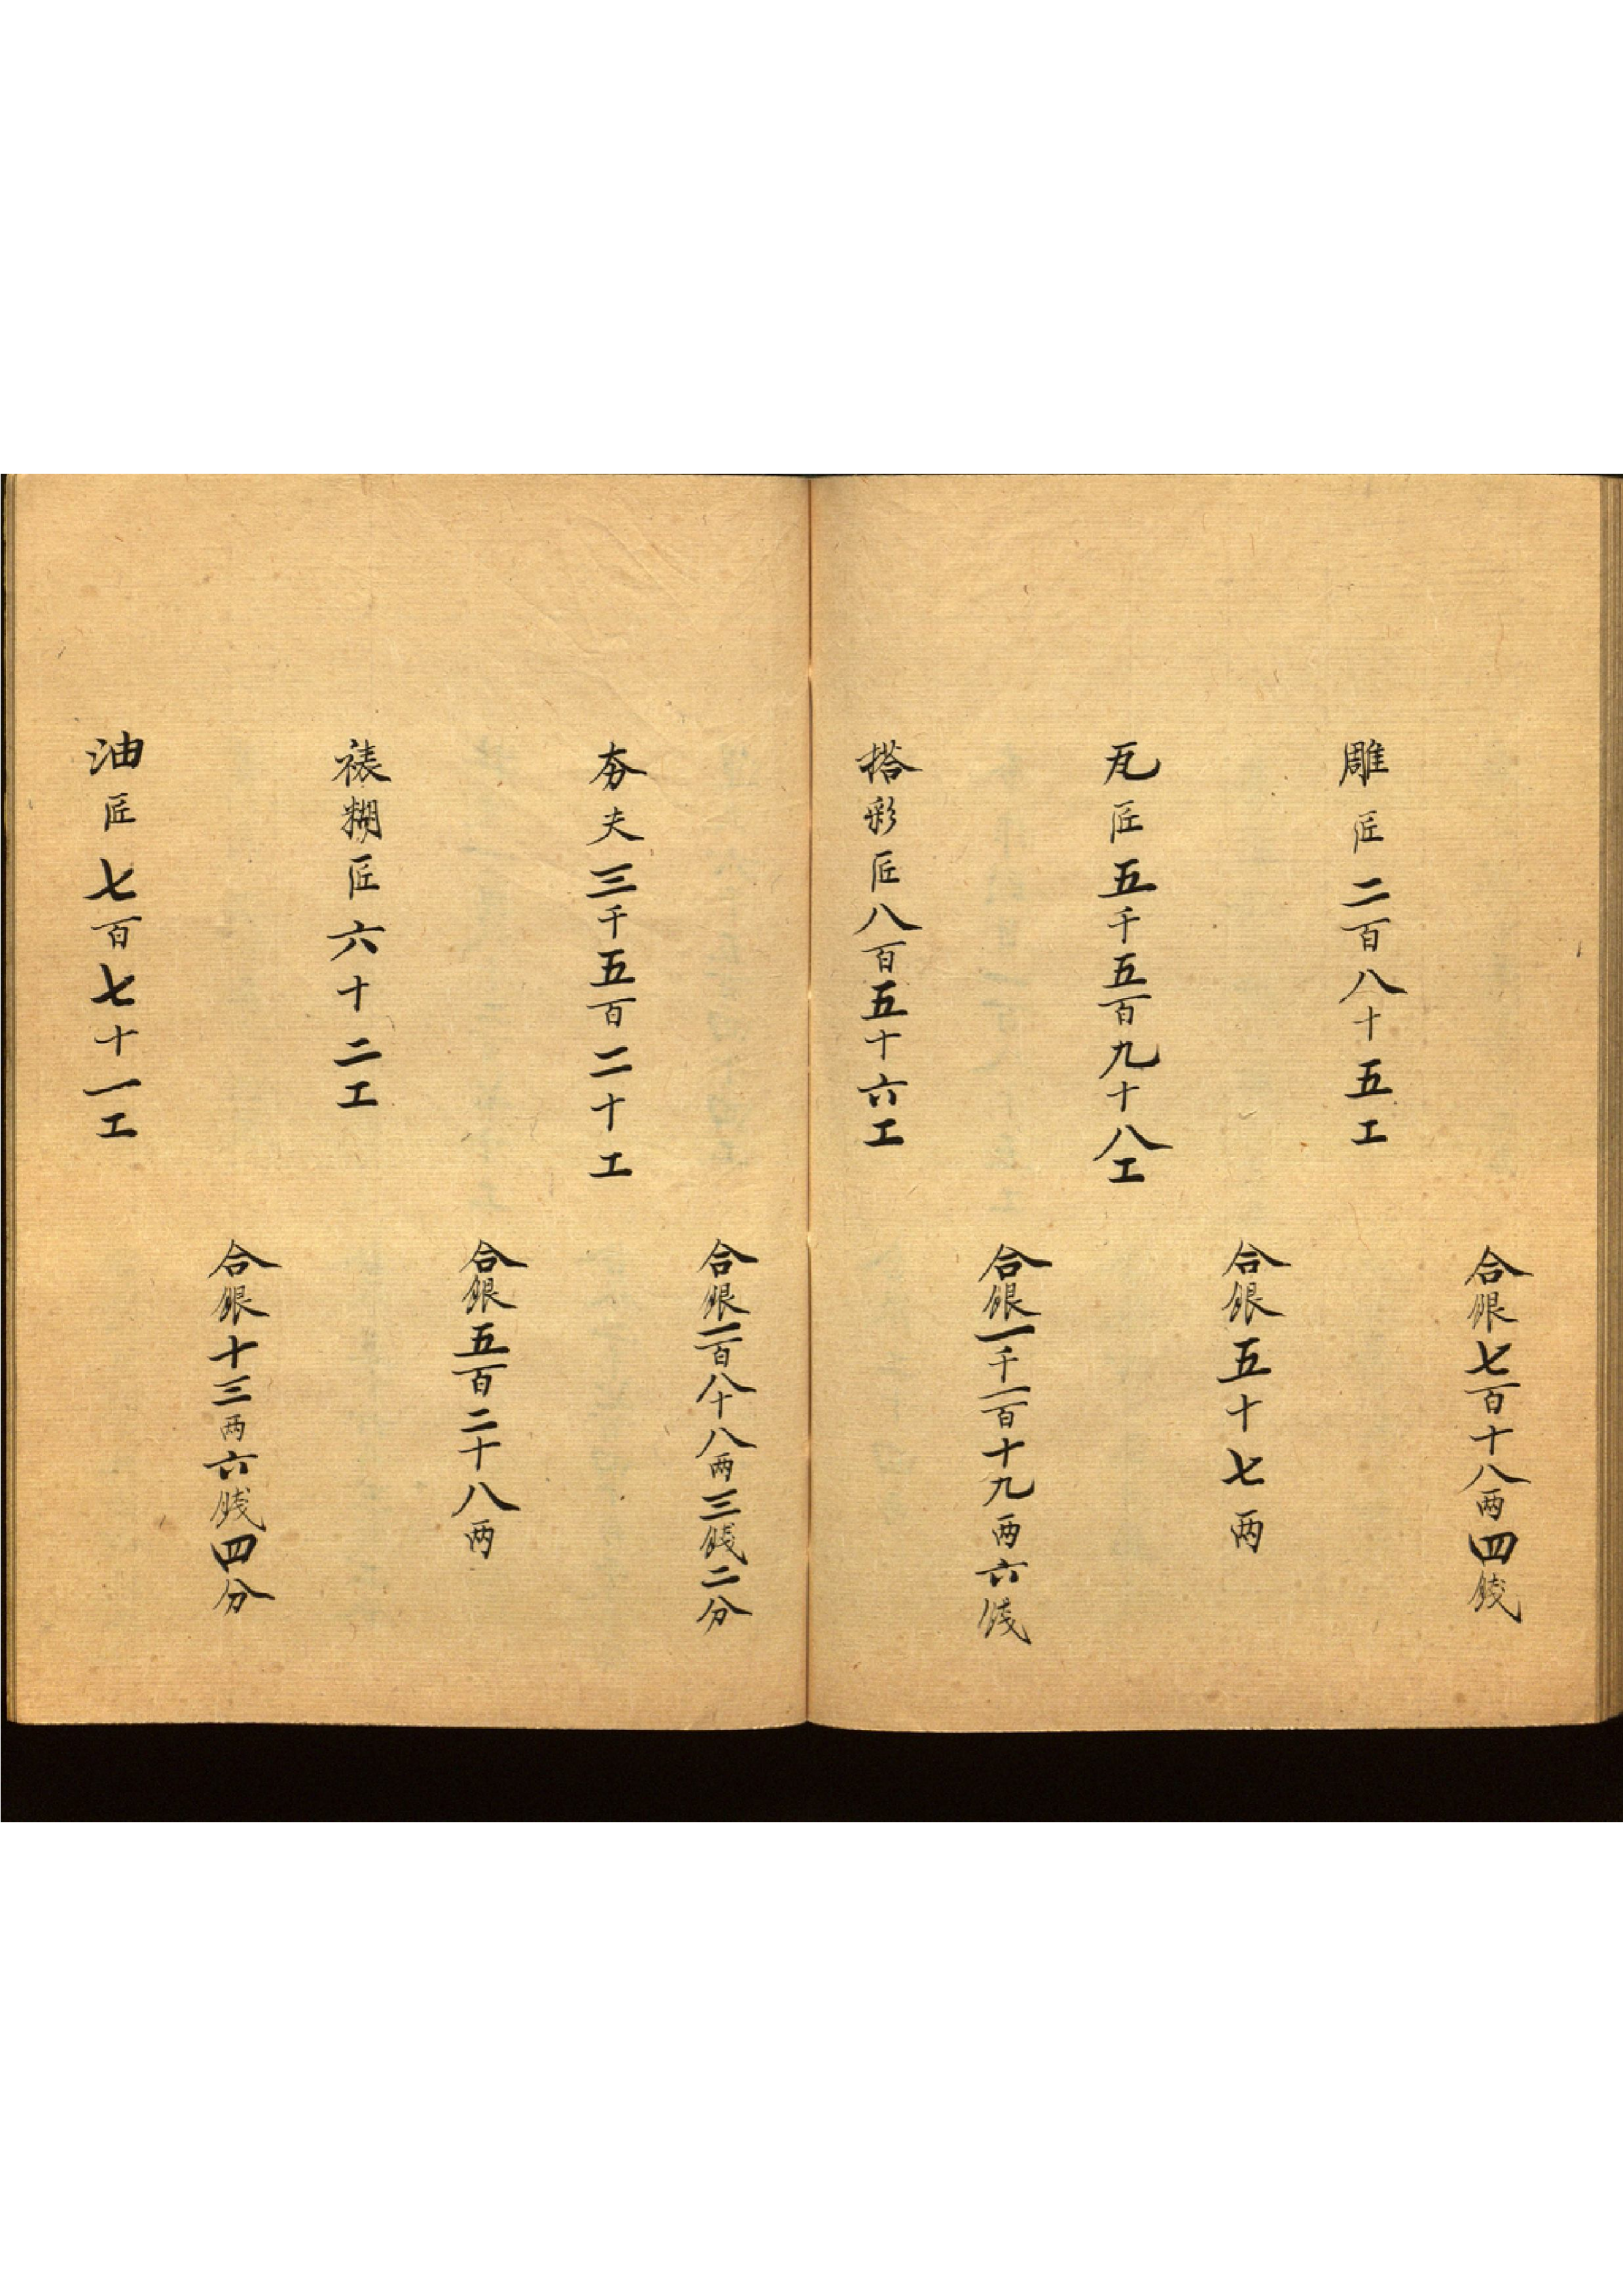 合銀七百十八两四錢
雕匠二百八十五工
合銀五十七两
瓦匠五千五百九十八工
合銀一千一百十九两六錢
搭彩匠八百五十六工
合銀一百八十八两三錢二分
夯夫三千五百二十工
合銀五百二十八两
裱糊匠六十二工
合銀十三两六錢四分
油匠七百七十一工